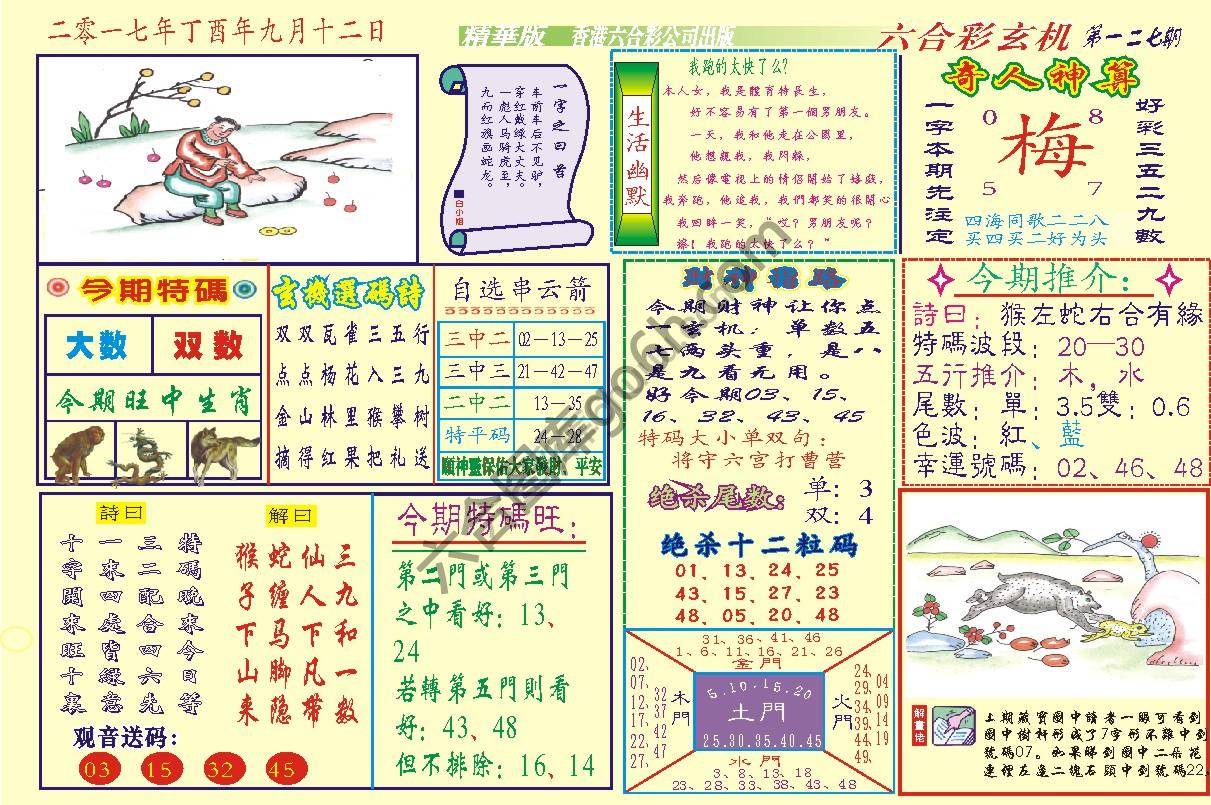 二零一七年丁酉年九月十二日
精華版 香港六合彩公司出版
六合彩玄机 第一二七期
一字之曰:首
车前车后不见驴,
穿红戴绿大丈夫。
一彪人马骑虎至,
九面红旗画蛇龙。
白小姐
生活幽默
我跑的太快了么?
本人女,我是體育特長生,
好不容易有了第一個男朋友。
一天,我和他走在公園里,
他想親我,我閃躲,
然后像電視上的情侶開始了嬉戲,
我奔跑,他追我,我們都笑的很開心
我回眸一笑,“哎?男朋友呢?
擦!我跑的太快了么?”
奇人神算
一字本期先注定
0 8
梅
5 7
四海同歌二二八
买四买二好为头
好彩三五二九數
今期特碼
大数 双数
今期旺中生肖
玄機選碼詩
双双瓦雀三五行
点点杨花入三九
金山林里猴攀树
摘得红果把礼送
自选串云箭
三中二 02—13—25
三中三 21—42—47
二中二 13—35
特平码 24—28
願神靈保佑大家發財、平安
財神指路
今期财神让你点
一玄机:单数五
七两头重,是八
是九看无用。
好今期03、15、
16、32、43、45
特码大小单双句:
将守六宫打曹营
绝杀尾数: 单:3
双:4
绝杀十二粒码
01、13、24、25
43、15、27、23
48、05、20、48
今期推介:
詩曰:猴左蛇右合有緣
特碼波段:20—30
五行推介:木,水
尾數:單:3.5雙:0.6
色波:紅、藍
幸運號碼:02、46、48
詩曰
特碼晚來今日等
三二配合四六先
一來四處皆緣意
十字開來旺十裏
解曰
三九和一数
仙人下凡带
蛇缠马脚隐
猴子下山来
观音送码:
03 15 32 45
今期特碼旺:
第二門或第三門
之中看好:13、
24
若轉第五門則看
好:43、48
但不排除:16、14
31、36、41、46
1、6、11、16、21、26
金門
02、07、12、17、22、27、
32、37、42、47
木門
5.10.15.20
土門
25.30.35.40.45
火門
24、29、34、39、44、49、
04、09、14、19
水門
3、8、13、18
23、28、33、38、43、48
解畫佬
上期藏寶圖中讀者一眼可看到
圖中樹杆形成了7字形不難中到
號碼07。如果睇到圖中二朵花
連徑左邊二塊石頭中到號碼22,
六合图库go6h.com